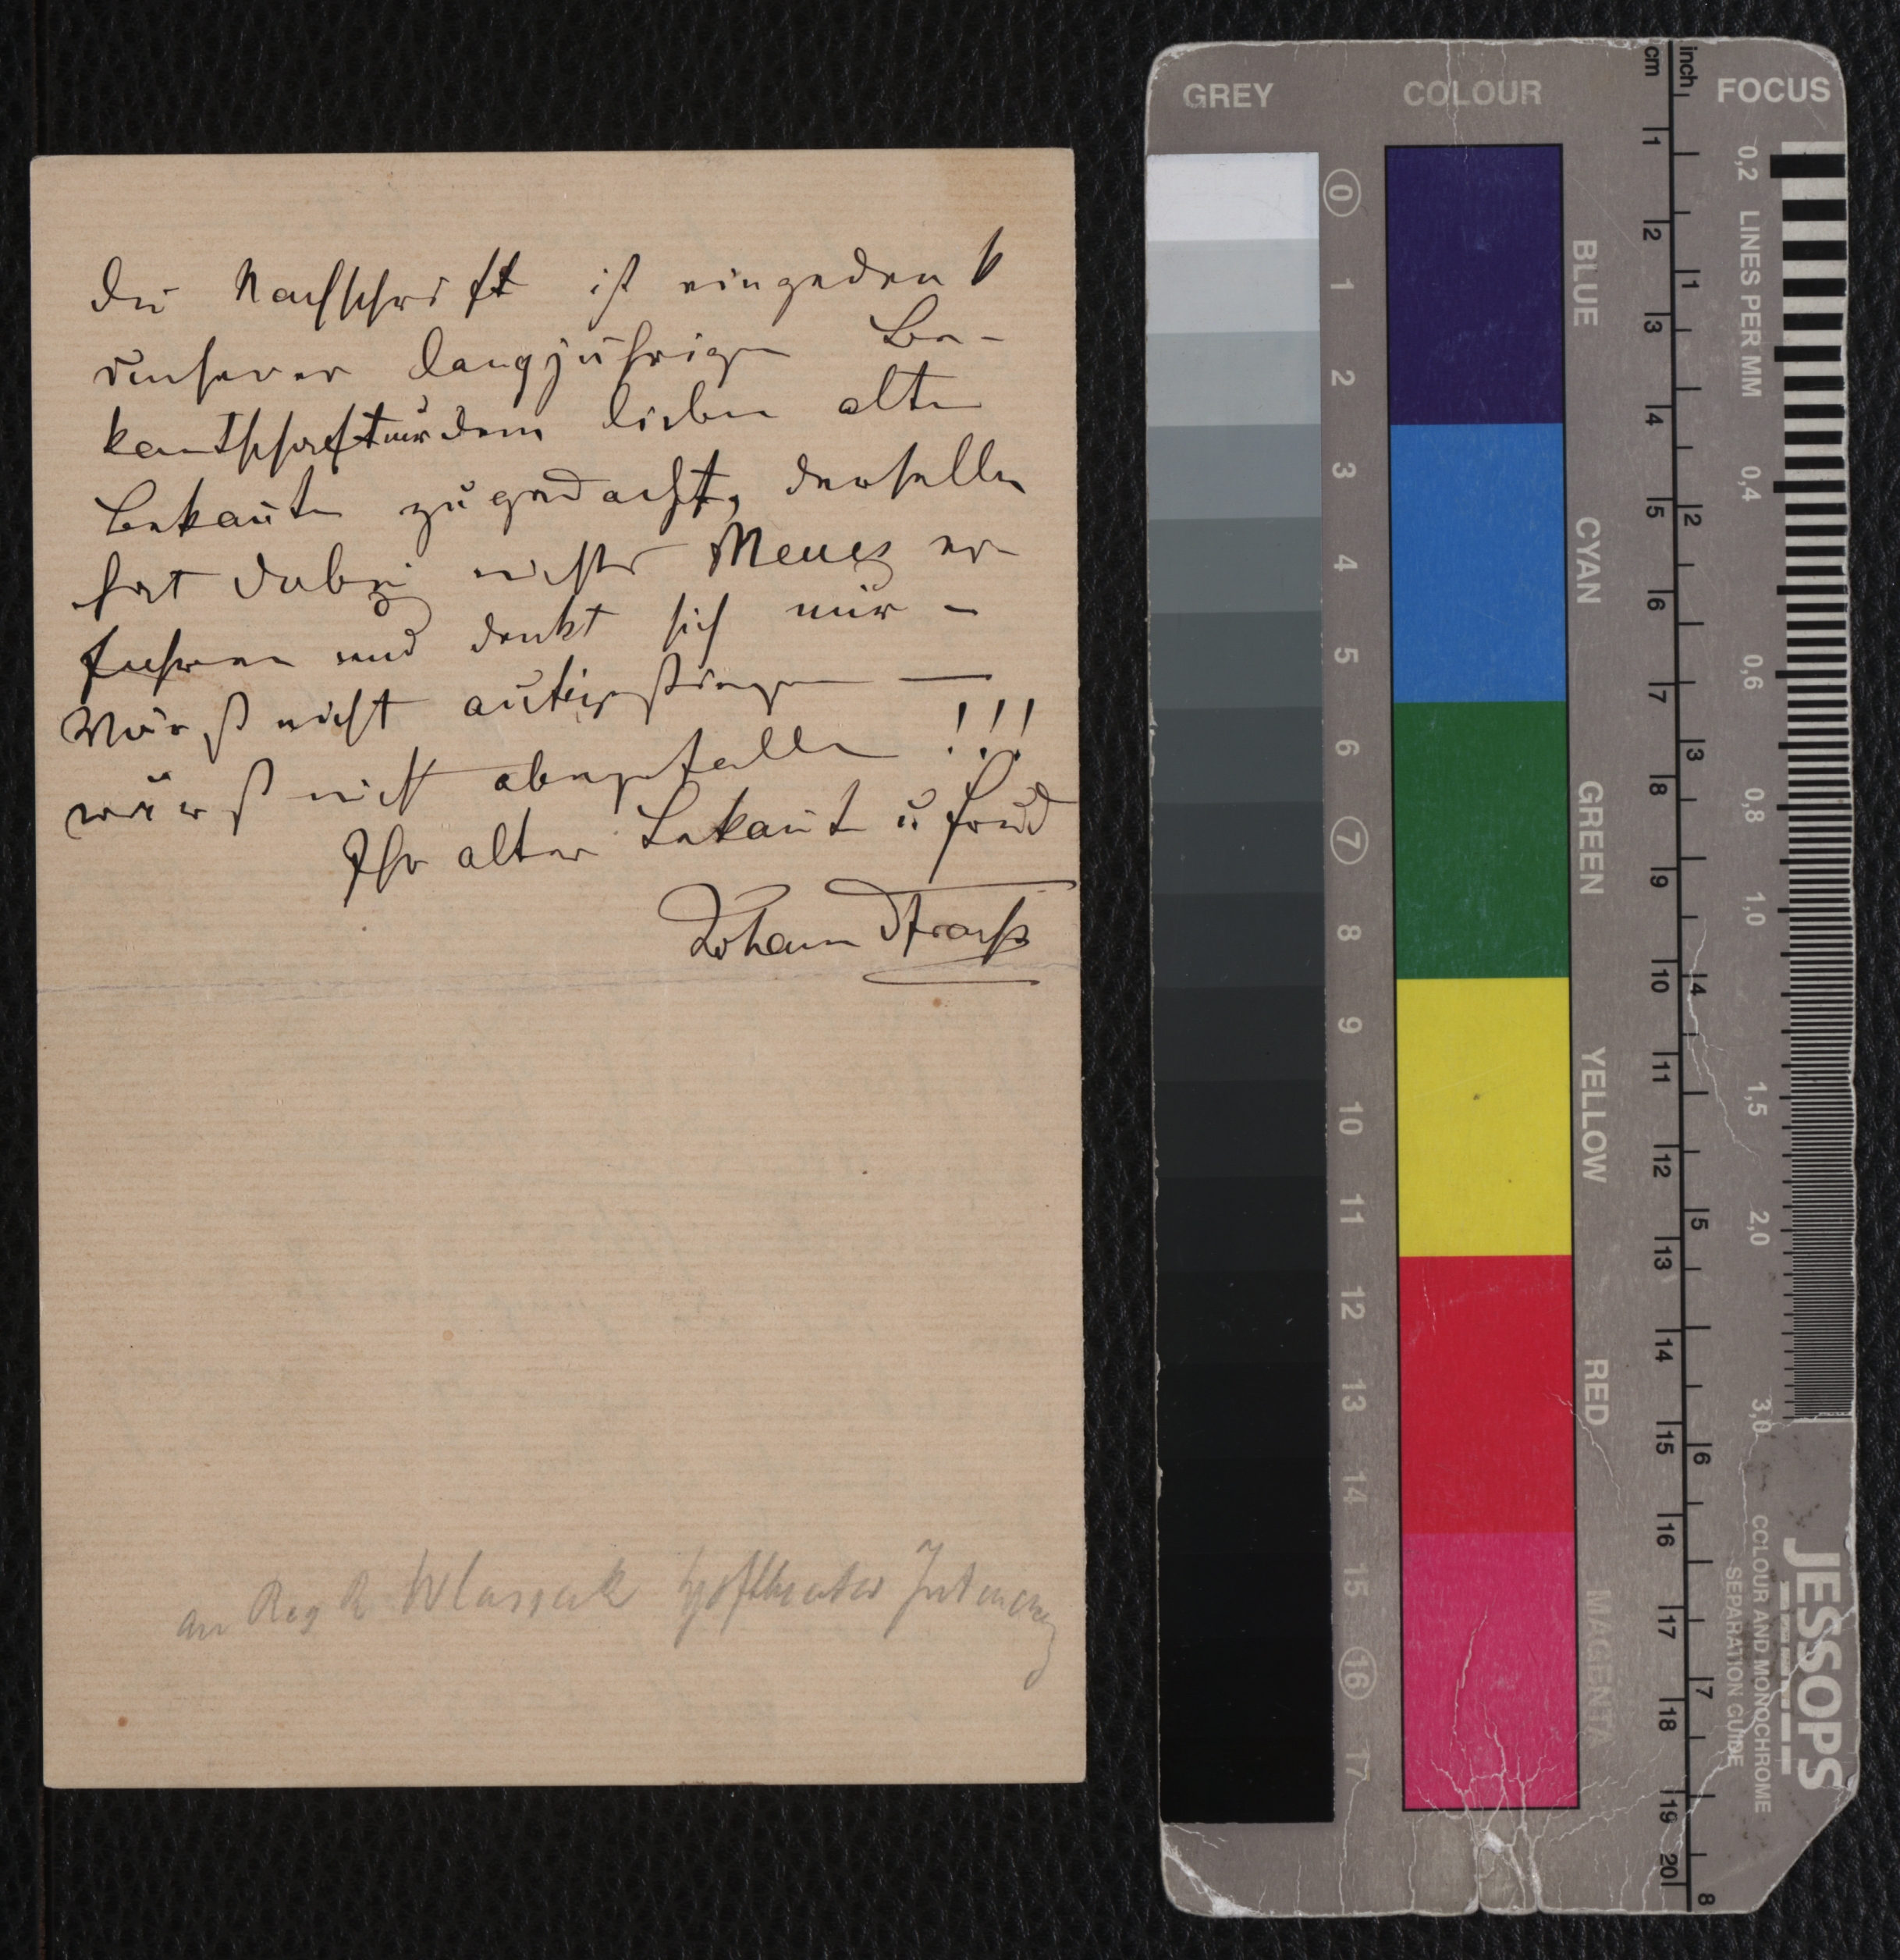 Die Nachschrift ist eingedenk
unserer langjährigen Be-
kantschaft nur dem lieben alten
Bekanten zugedacht, derselbe
hat dabei nichts Neues er-
fahren und denkt sich nur –
wärst nicht aufigstiegen —
wärst nicht abergfallen !!!
Ihr alter Bekanter u Freund
Johann Strauß
an Reg R Wlassak Hoftheater Intendanz
GREY
COLOUR
FOCUS
cm
inch
0 1 2 3 4 5 6 7 8 9 10 11 12 13 14 15 16 17
BLUE
CYAN
GREEN
YELLOW
RED
MAGENTA
1 2 3 4 5 6 7 8 9 10 11 12 13 14 15 16 17 18 19 20
1 2 3 4 5 6 7 8
0,2 LINES PER MM 0,4 0,6 0,8 1,0 1,5 2,0 3,0
COLOUR AND MONOCHROME
SEPARATION GUIDE
JESSOPS